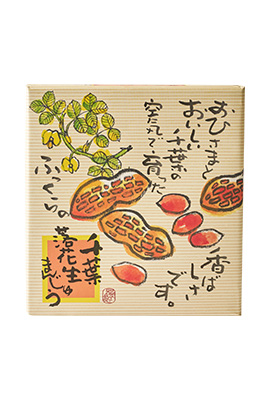 おひさまと
おいしい
千葉の
空気で育った
ふっくらの
香ば
しさ
です。
千葉
落花生
まんじゅう